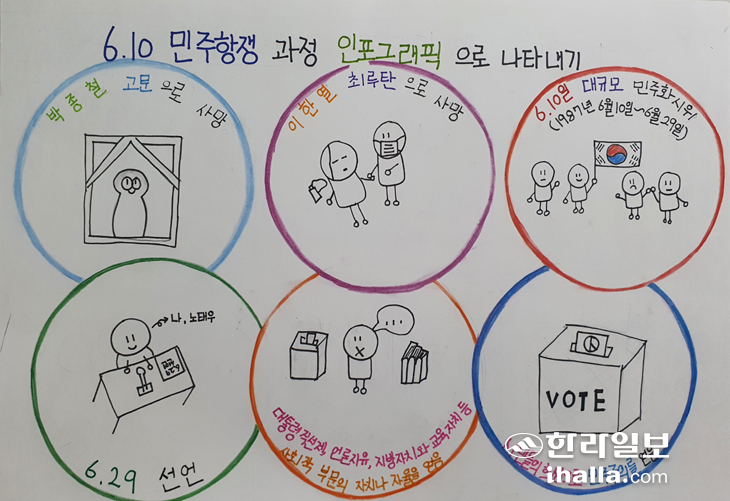 6.10 민주항쟁 과정 인포그래픽 으로 나타내기
박종철 고문으로 사망
이한열 최루탄으로 사망
6.10일 대규모 민주화시위
(1987년 6월10일~6월29일)
나, 노태우
6.29
6.29 선언
...
대통령 직선제, 언론자유, 지방자치와 교육자치 등
사회 각 부문의 자치나 자율을 얻음
VOTE
한라일보
ihalla.com